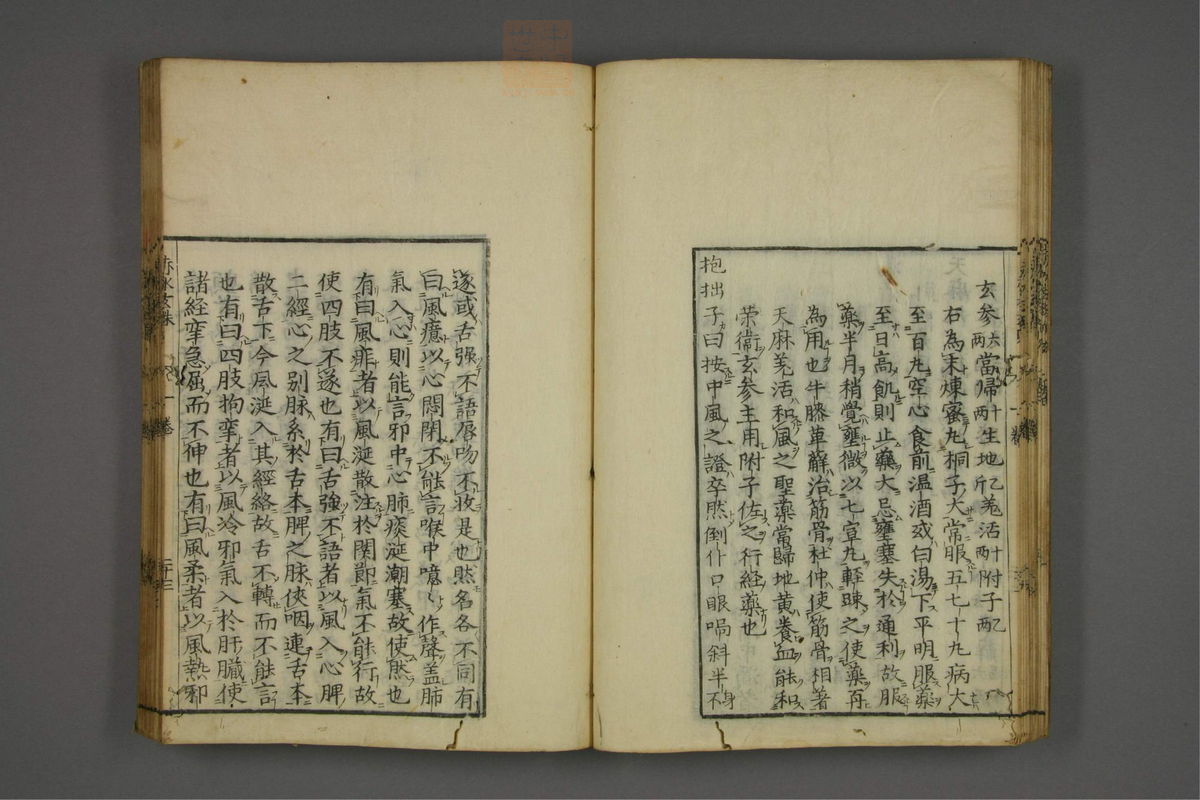 玄参六両當歸十両生地一斤羌活十両附子一両
右為末煉蜜丸桐子大常服五七十丸病大
至百丸空心食前温酒或白湯下平明服藥
至日高飢則止藥大忌壅塞失於通利故服
藥半月稍覺壅微以七宣丸輕踈之使藥再
為用也牛膝萆薢治筋骨杜仲使筋骨相著
天麻羌活和風之聖藥當歸地黄養血能和
榮衛玄参主用附子佐之行経藥也
抱拙子曰按中風之證卒然倒仆口眼喎斜半身不
遂或舌强不語唇吻不收是也然名各不同有
曰風癔以心悶閉不能言喉中噫噫作聲盖肺
氣入心則能言邪中心肺痰涎潮塞故使然也
有曰風痱者以風涎散注於関節氣不能行故
使四肢不遂也有曰舌強不語者以風入心脾
二經心之别脉系於舌本脾之脉俠咽連舌本
散舌下今風涎入其經絡故舌不轉而不能言
也有曰四肢拘挛者以風冷邪氣入於肝臓使
諸経挛急屈而不伸也有曰風柔者以風熱邪
赤水玄珠 一卷 二十三